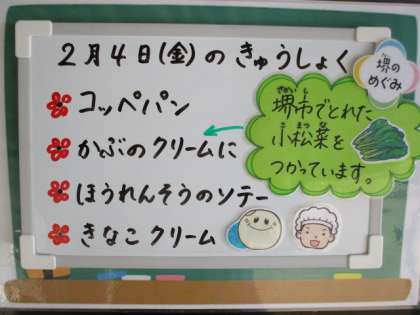 2月4日(金)のきゅうしょく
堺の
めぐみ
コッペパン
かぶのクリームに
ほうれんそうのソテー
きなこクリーム
さかいし
堺市でとれた
こまつな
小松菜を
つかっています。